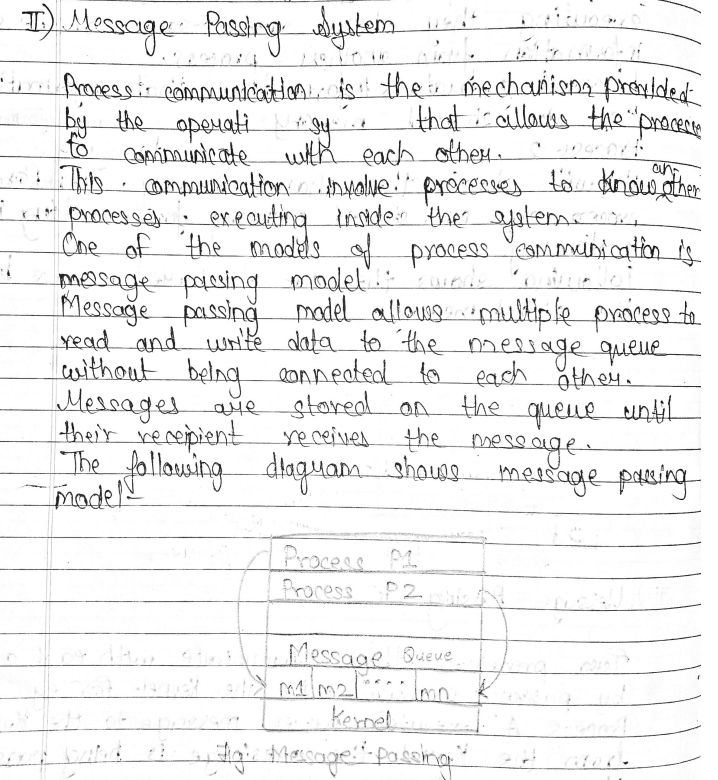 II.) Message Passing System
Process communication is the mechanism provided
by the operati sy that allows the process
to communicate with each other.
This communication involve processes to know an other
processes executing inside the system.
One of the models of process communication is
message passing model
Message passing model allows multiple process to
read and write data to the message queue
without being connected to each other.
Messages are stored on the queue until
their receipient receives the message.
The following diagram shows message passing
model-
Process P1
Process P2
Message Queue
m1 m2 .... mn
Kernel
fig: Message passing